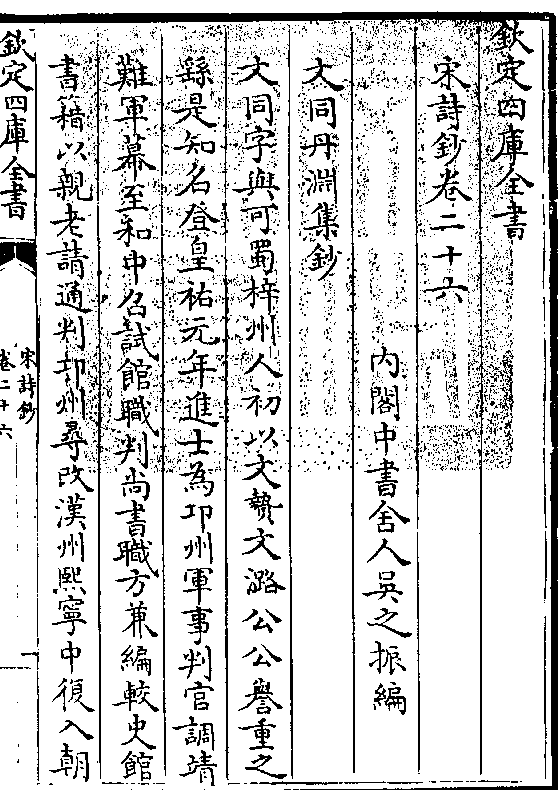 欽定四庫全書
宋詩鈔卷二十六
內閣中書舍人吳之振編
文同丹淵集鈔
文同字與可蜀梓州人初以文贄文潞公公譽重之
繇是知名登皇祐元年進士為卭州軍事判官調靖
難軍幕至和中召試館職判尚書職方兼編較史館
書籍以親老請通判卭州尋改漢州熙寧中復入朝
欽定四庫全書
宋詩鈔
卷二十六
一